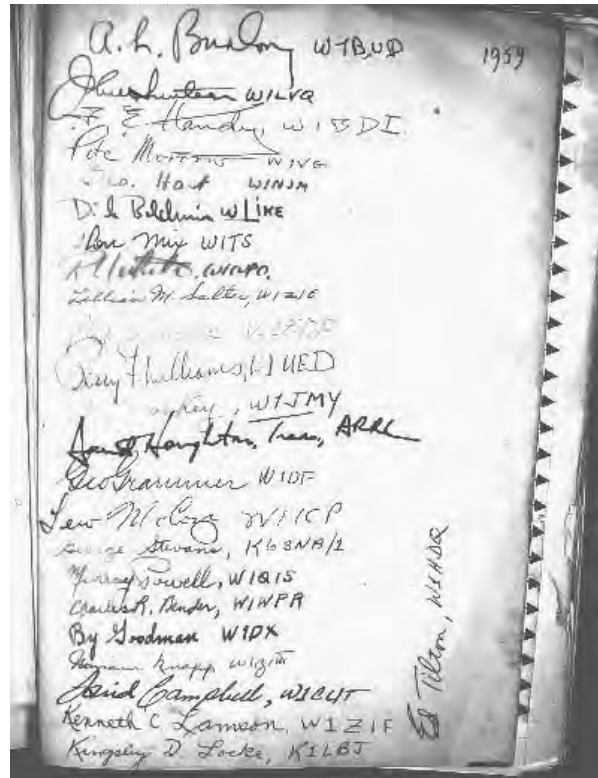 A. L. Budlong W1BUD
1959
Huntoon W1LVQ
F. E. Handy, W1BDI
Pete Morrow W1VG
Geo. Hart W1NJM
Baldwin W1IKE
Don Mix W1TS
Lillian M. Salter, W1ZJE
Williams, W1UED
W1JMY
Houghton, Treas, ARRL
Geo Grammer W1DF
Lew McCoy W1ICP
George Stevans, K6SNA/1
Murray Powell, W1QIS
Charles R. Bender, W1WPR
By Goodman W1DX
Knapp
David Campbell, W1CUT
Kenneth C Lamson, W1ZIF
Kingsley D. Locke, K1LBJ
Ed Tilton, W1HDQ